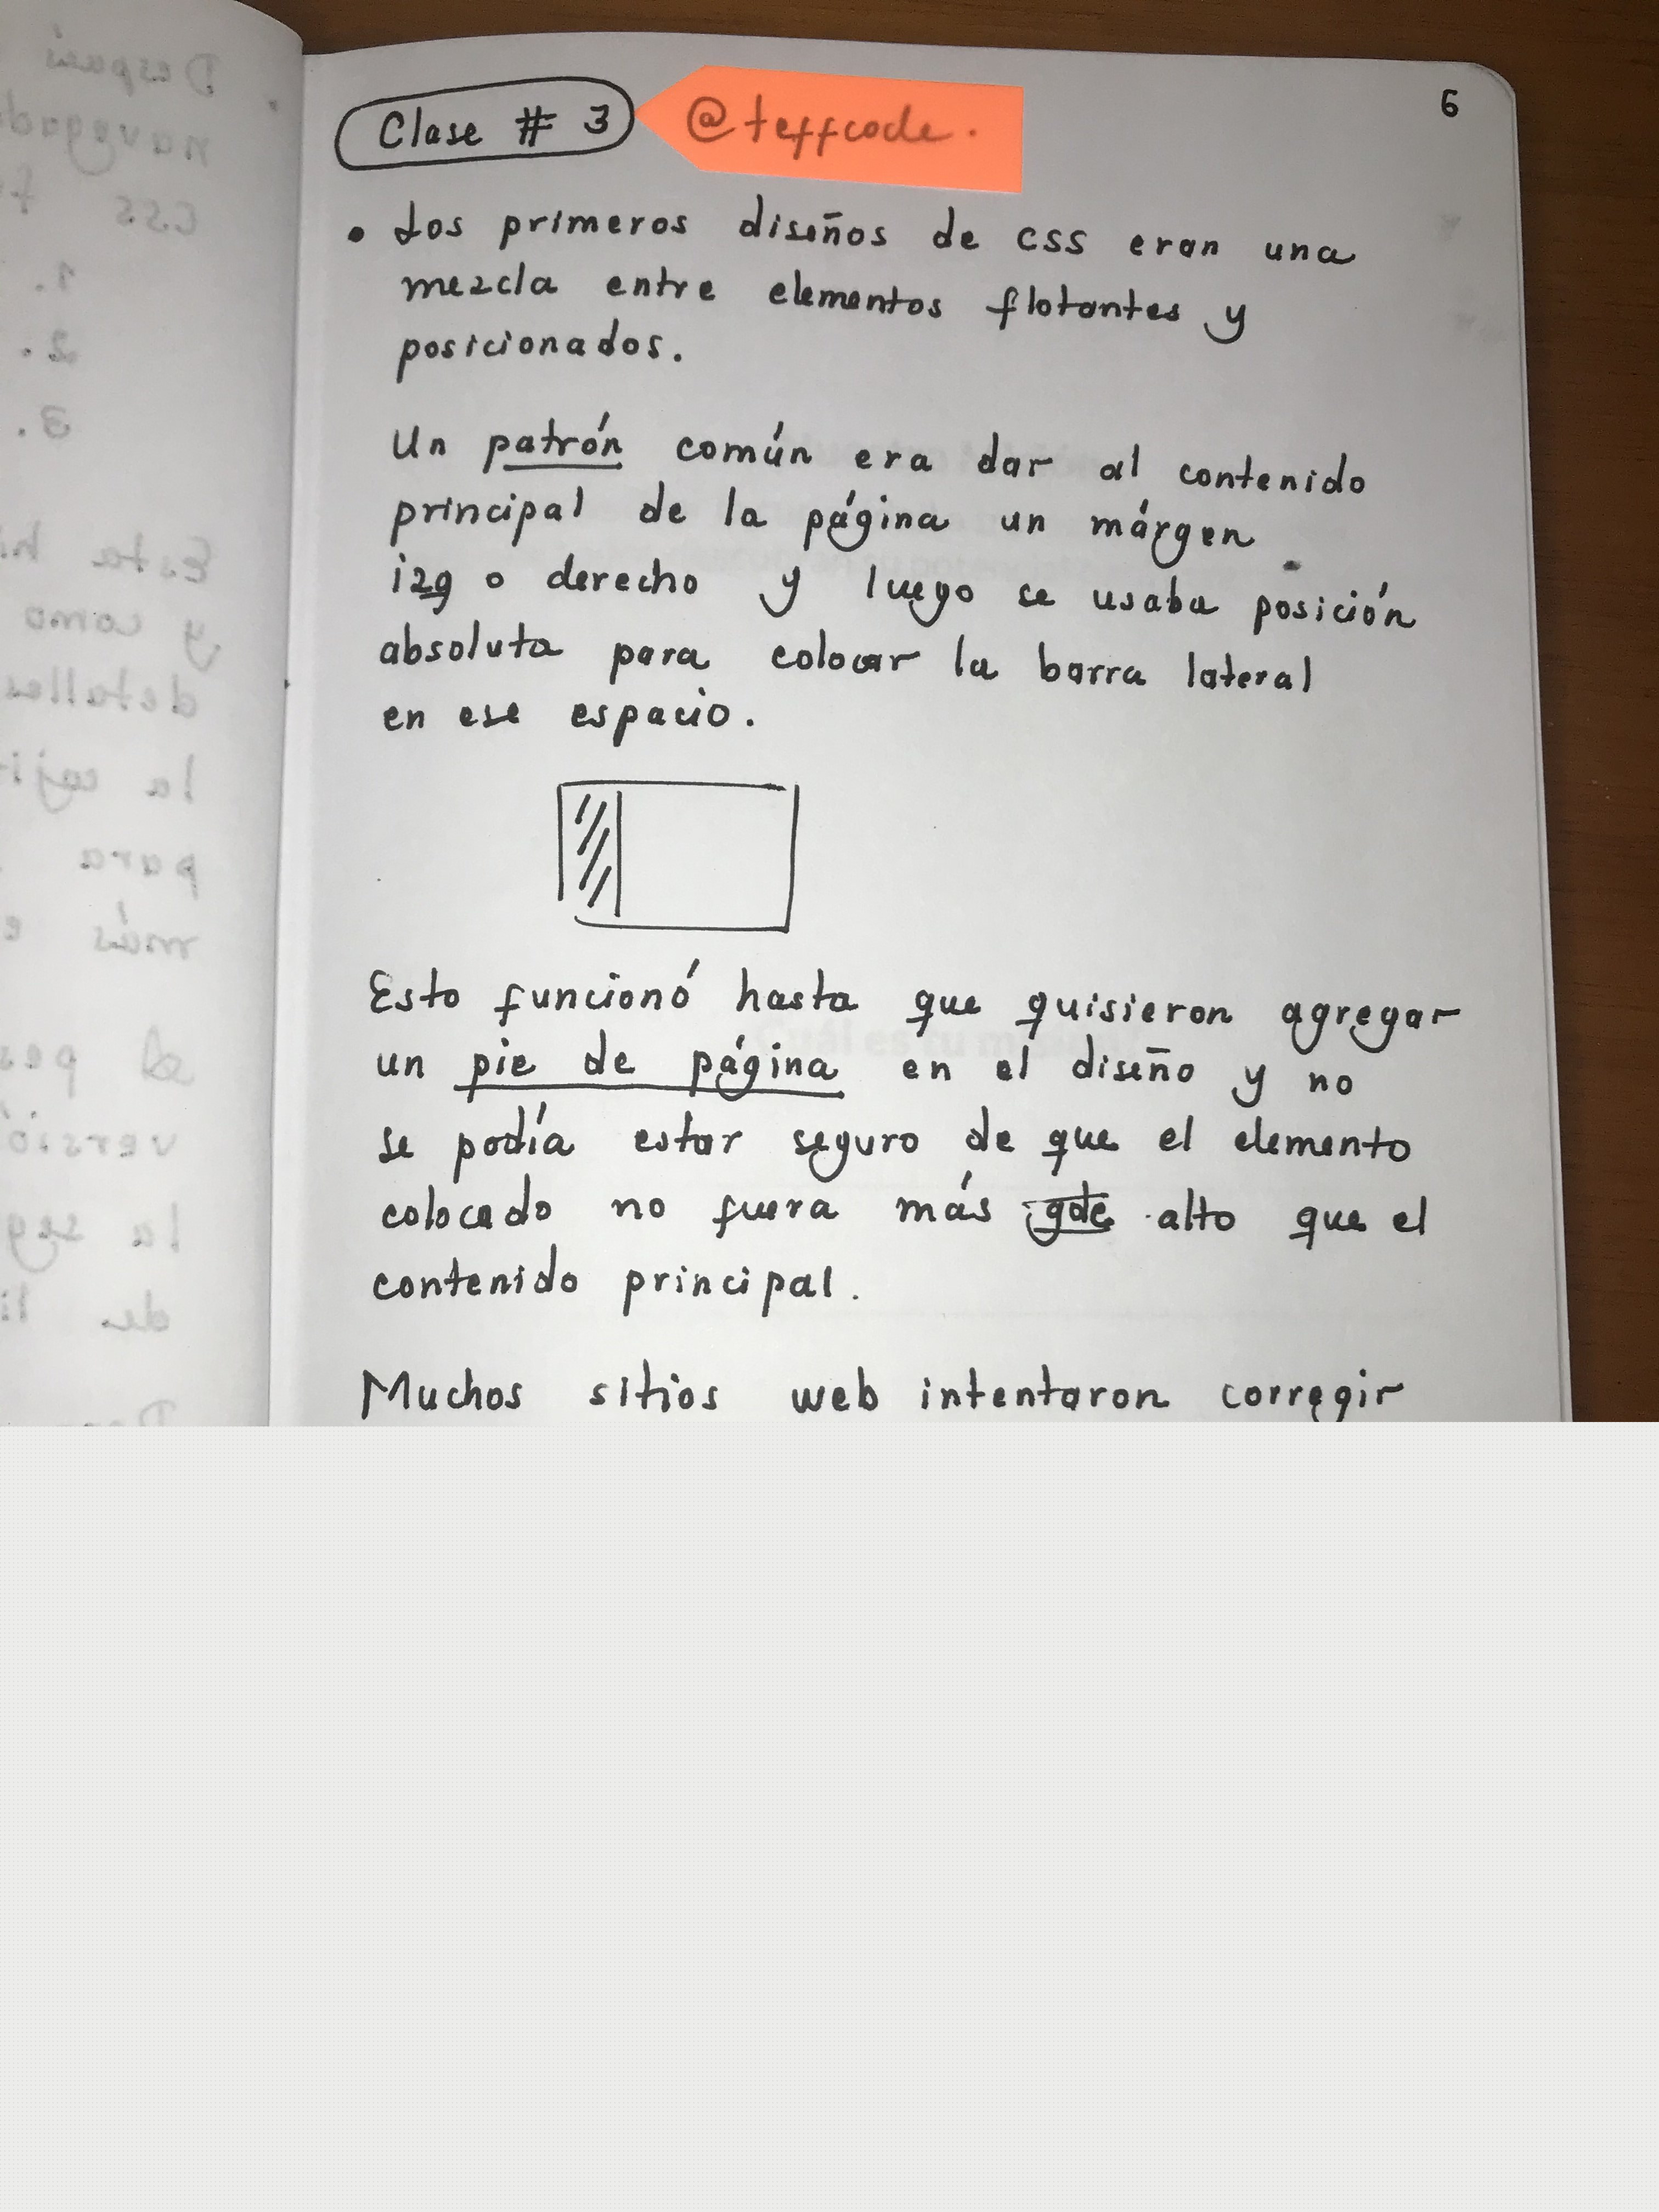 Clase # 3 @teffcode.
6
• Los primeros diseños de css eran una
mezcla entre elementos flotantes y
posicionados.
Un patrón común era dar al contenido
principal de la página un márgen
izq o derecho y luego se usaba posición
absoluta para colocar la barra lateral
en ese espacio.
Esto funcionó hasta que quisieron agregar
un pie de página en el diseño y no
se podía estar seguro de que el elemento
colocado no fuera más gde alto que el
contenido principal.
Muchos sitios web intentaron corregir